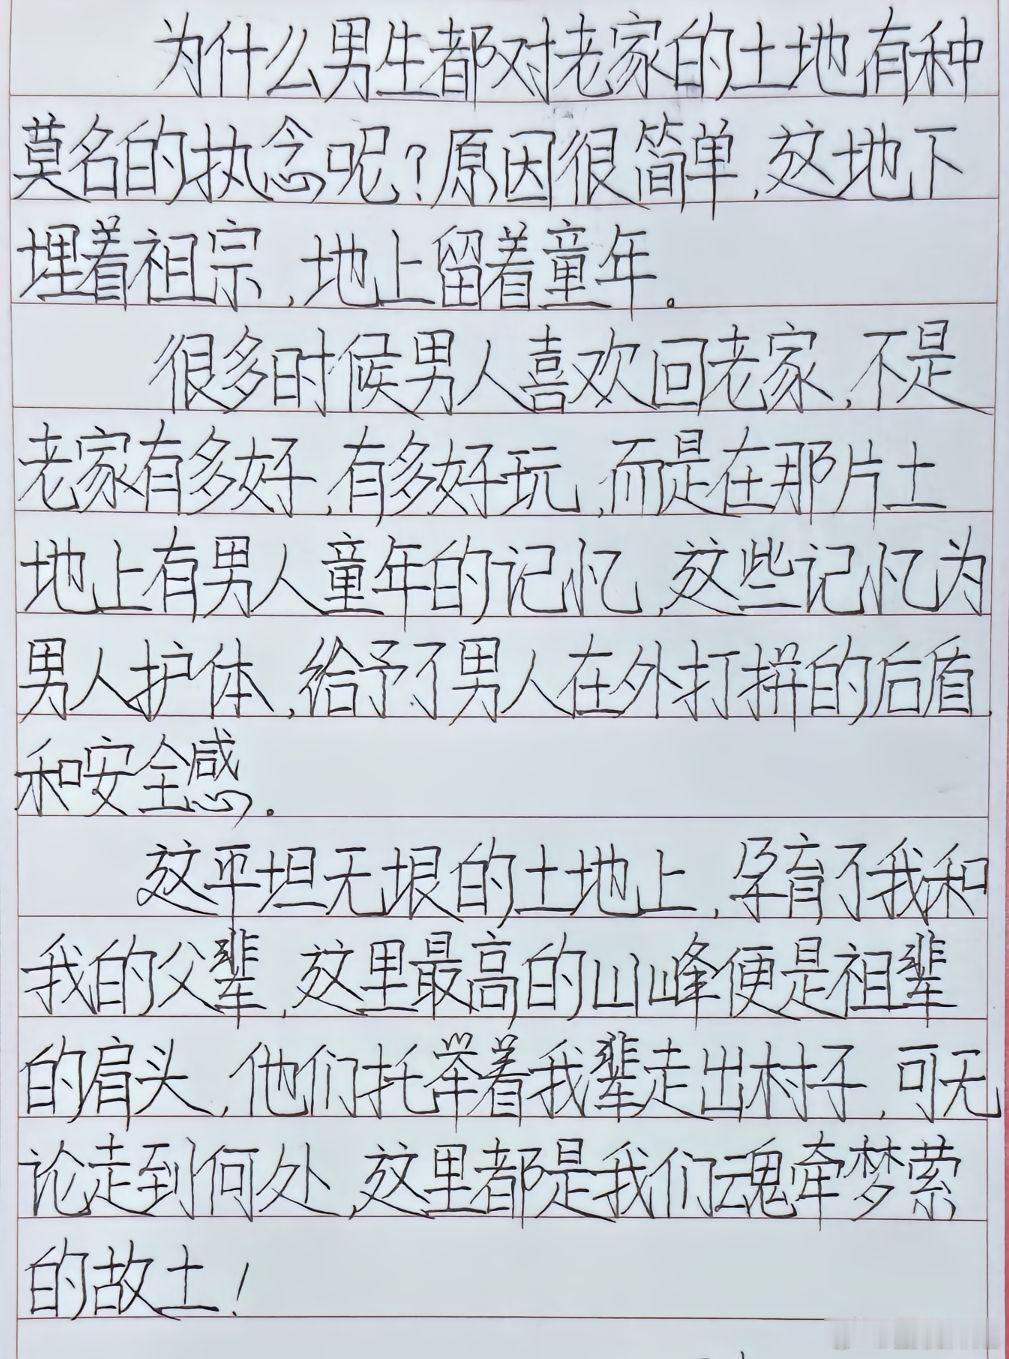 为什么男生都对老家的土地有种
莫名的执念呢?原因很简单,这地下
埋着祖宗,地上留着童年。
很多时候男人喜欢回老家,不是
老家有多好,有多好玩,而是在那片土
地上有男人童年的记忆,这些记忆为
男人护体,给予了男人在外打拼的后盾
和安全感。
这平坦无垠的土地上,孕育了我和
我的父辈,这里最高的山峰便是祖辈
的肩头,他们托举着我辈走出村子,可无
论走到何处,这里都是我们魂牵梦萦
的故土!